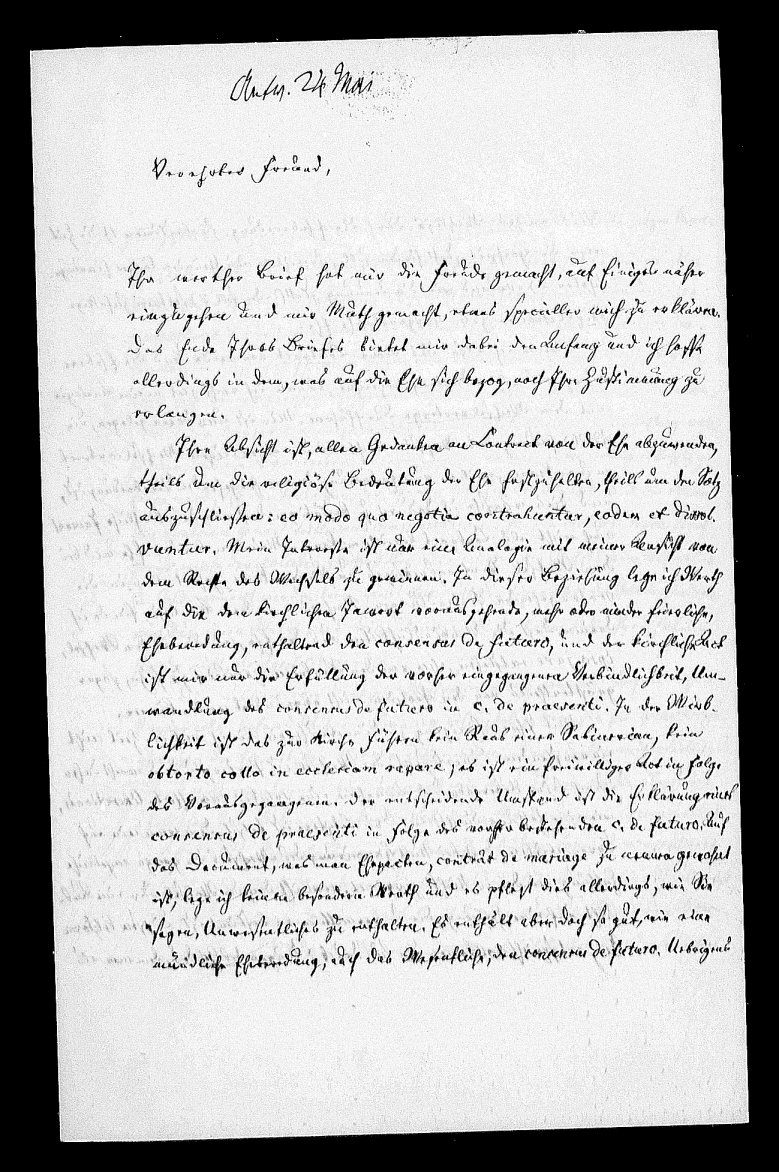 Antw. 24 Mai
Verehrter Freund,
Ihr werther Brief hat mir die Freude gemacht, auf Einiges näher
einzugehen und mir Muth gemacht, etwas specieller mich zu erklären.
Das Ende Ihres Briefes bietet mir dabei den Anfang und ich hoffe
allerdings in dem, was auf die Ehe sich bezog, noch Ihre Zustimmung zu
erlangen.
Ihre Absicht ist, allen Gedanken an Contract von der Ehe abzuwenden,
theils um die religiöse Bedeutung der Ehe festzuhalten, theils um den Satz
auszuschliessen: eo modo quo negotia contrahuntur, eodem et dissol-
vuntur. Mein Interesse ist nur eine Analogie mit meiner Ansicht von
dem Rechte des Wechsels zu gewinnen. In dieser Beziehung lege ich Werth
auf die dem kirchlichen Jawort vorausgehende, mehr oder minder feierliche,
Eheberedung, enthaltend den consensus de futuro, und der kirchliche Act
ist mir nur die Erfüllung der vorher eingegangenen Verbindlichkeit, Um-
wandlung des consensus de futuro in c. de praesenti. In der Wirk-
lichkeit ist das zur Kirche Führen kein Raub einer Sabinerinn, kein
obtorto collo in ecclesiam rapere, es ist ein freiwilliger Act in Folge
des Vorausgegangenen. Der entscheidende Umstand ist die Erklärung eines
consensus de praesenti in Folge des vorher bestehenden c. de futuro. Auf
das Document, was man Ehepacten, contrât de mariage zu nennen gewohnt
ist, lege ich keinen besondern Werth und es pflegt dies allerdings, wie Sie
sagen, Unwesentliches zu enthalten. Es enthält aber doch so gut, wie eine
mündliche Eheberedung, auch das Wesentliche, den consensus de futuro. Uebrigens